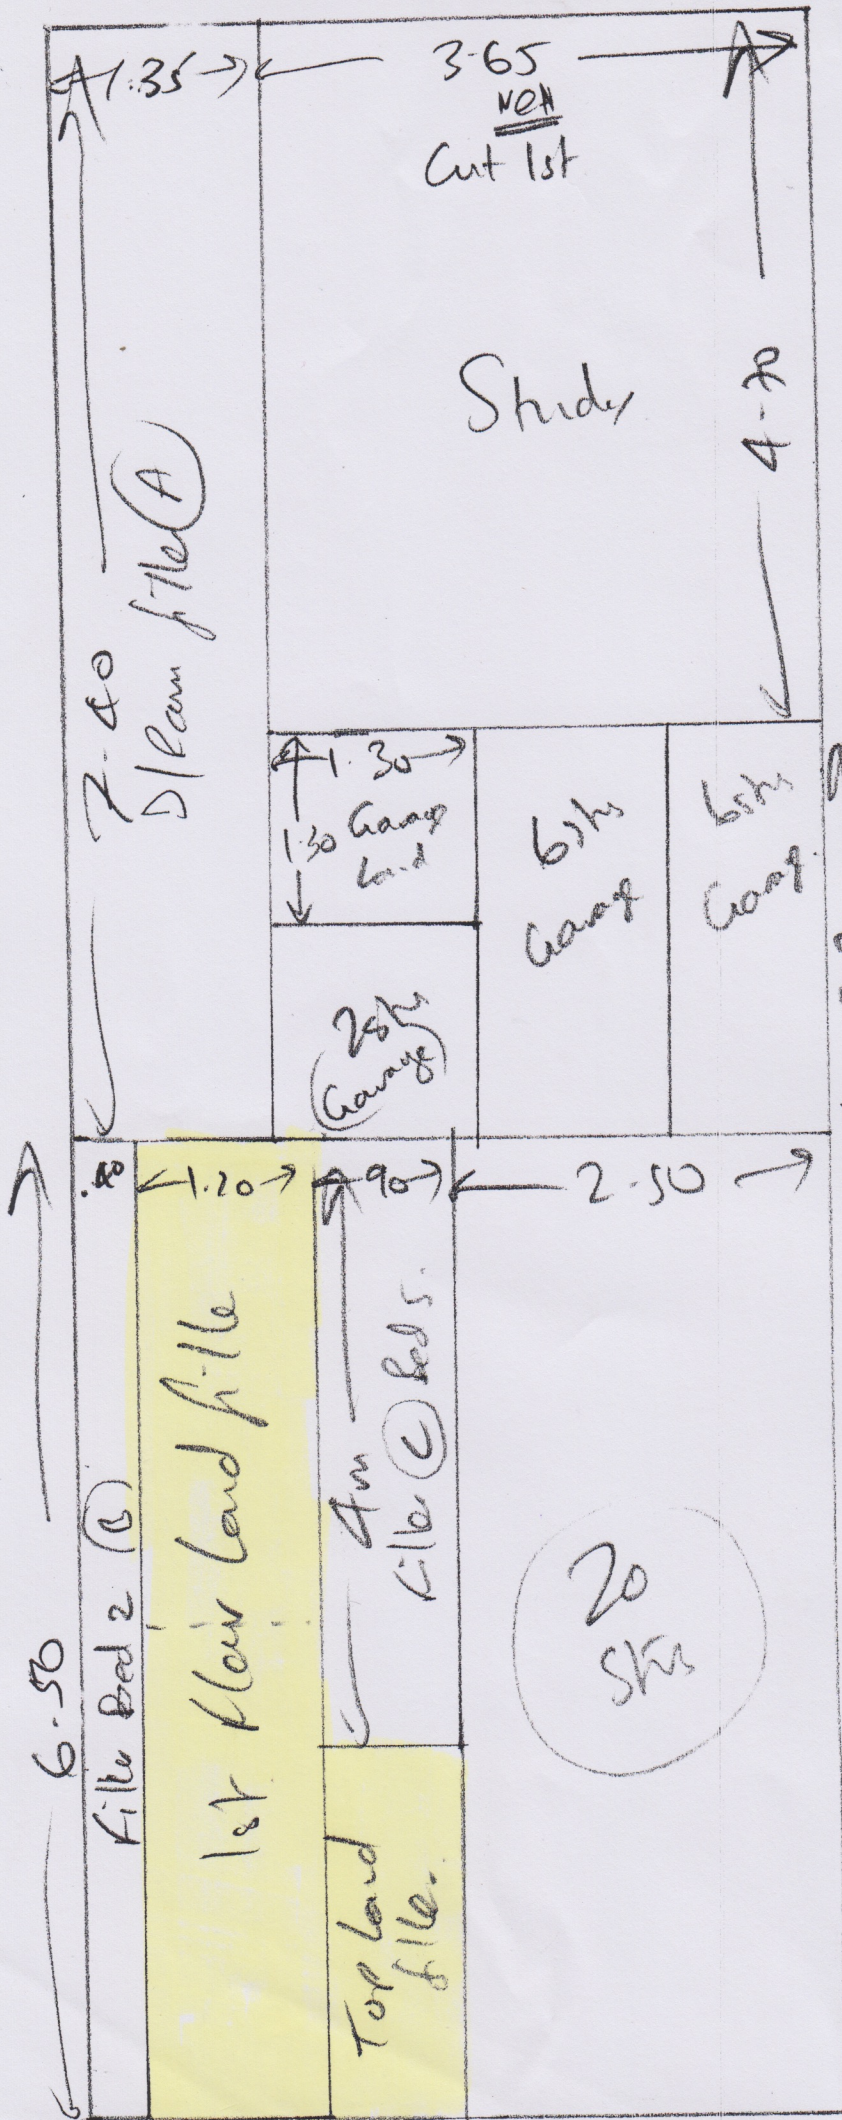 1.35
3.65
NEW
Cut 1st
Study
4.70
7.40
D/Room filler (A)
1.30
1.30 Garage
Land
6 sts
Garage
6 sts
Garage
2 sts
(Garage)
6.50
.40
1.20
.90
2.50
Filler Bed 2 (B)
1st Floor Land filler
4m
Filler (C) Bed 5.
20
Sts
Top Land
filler.